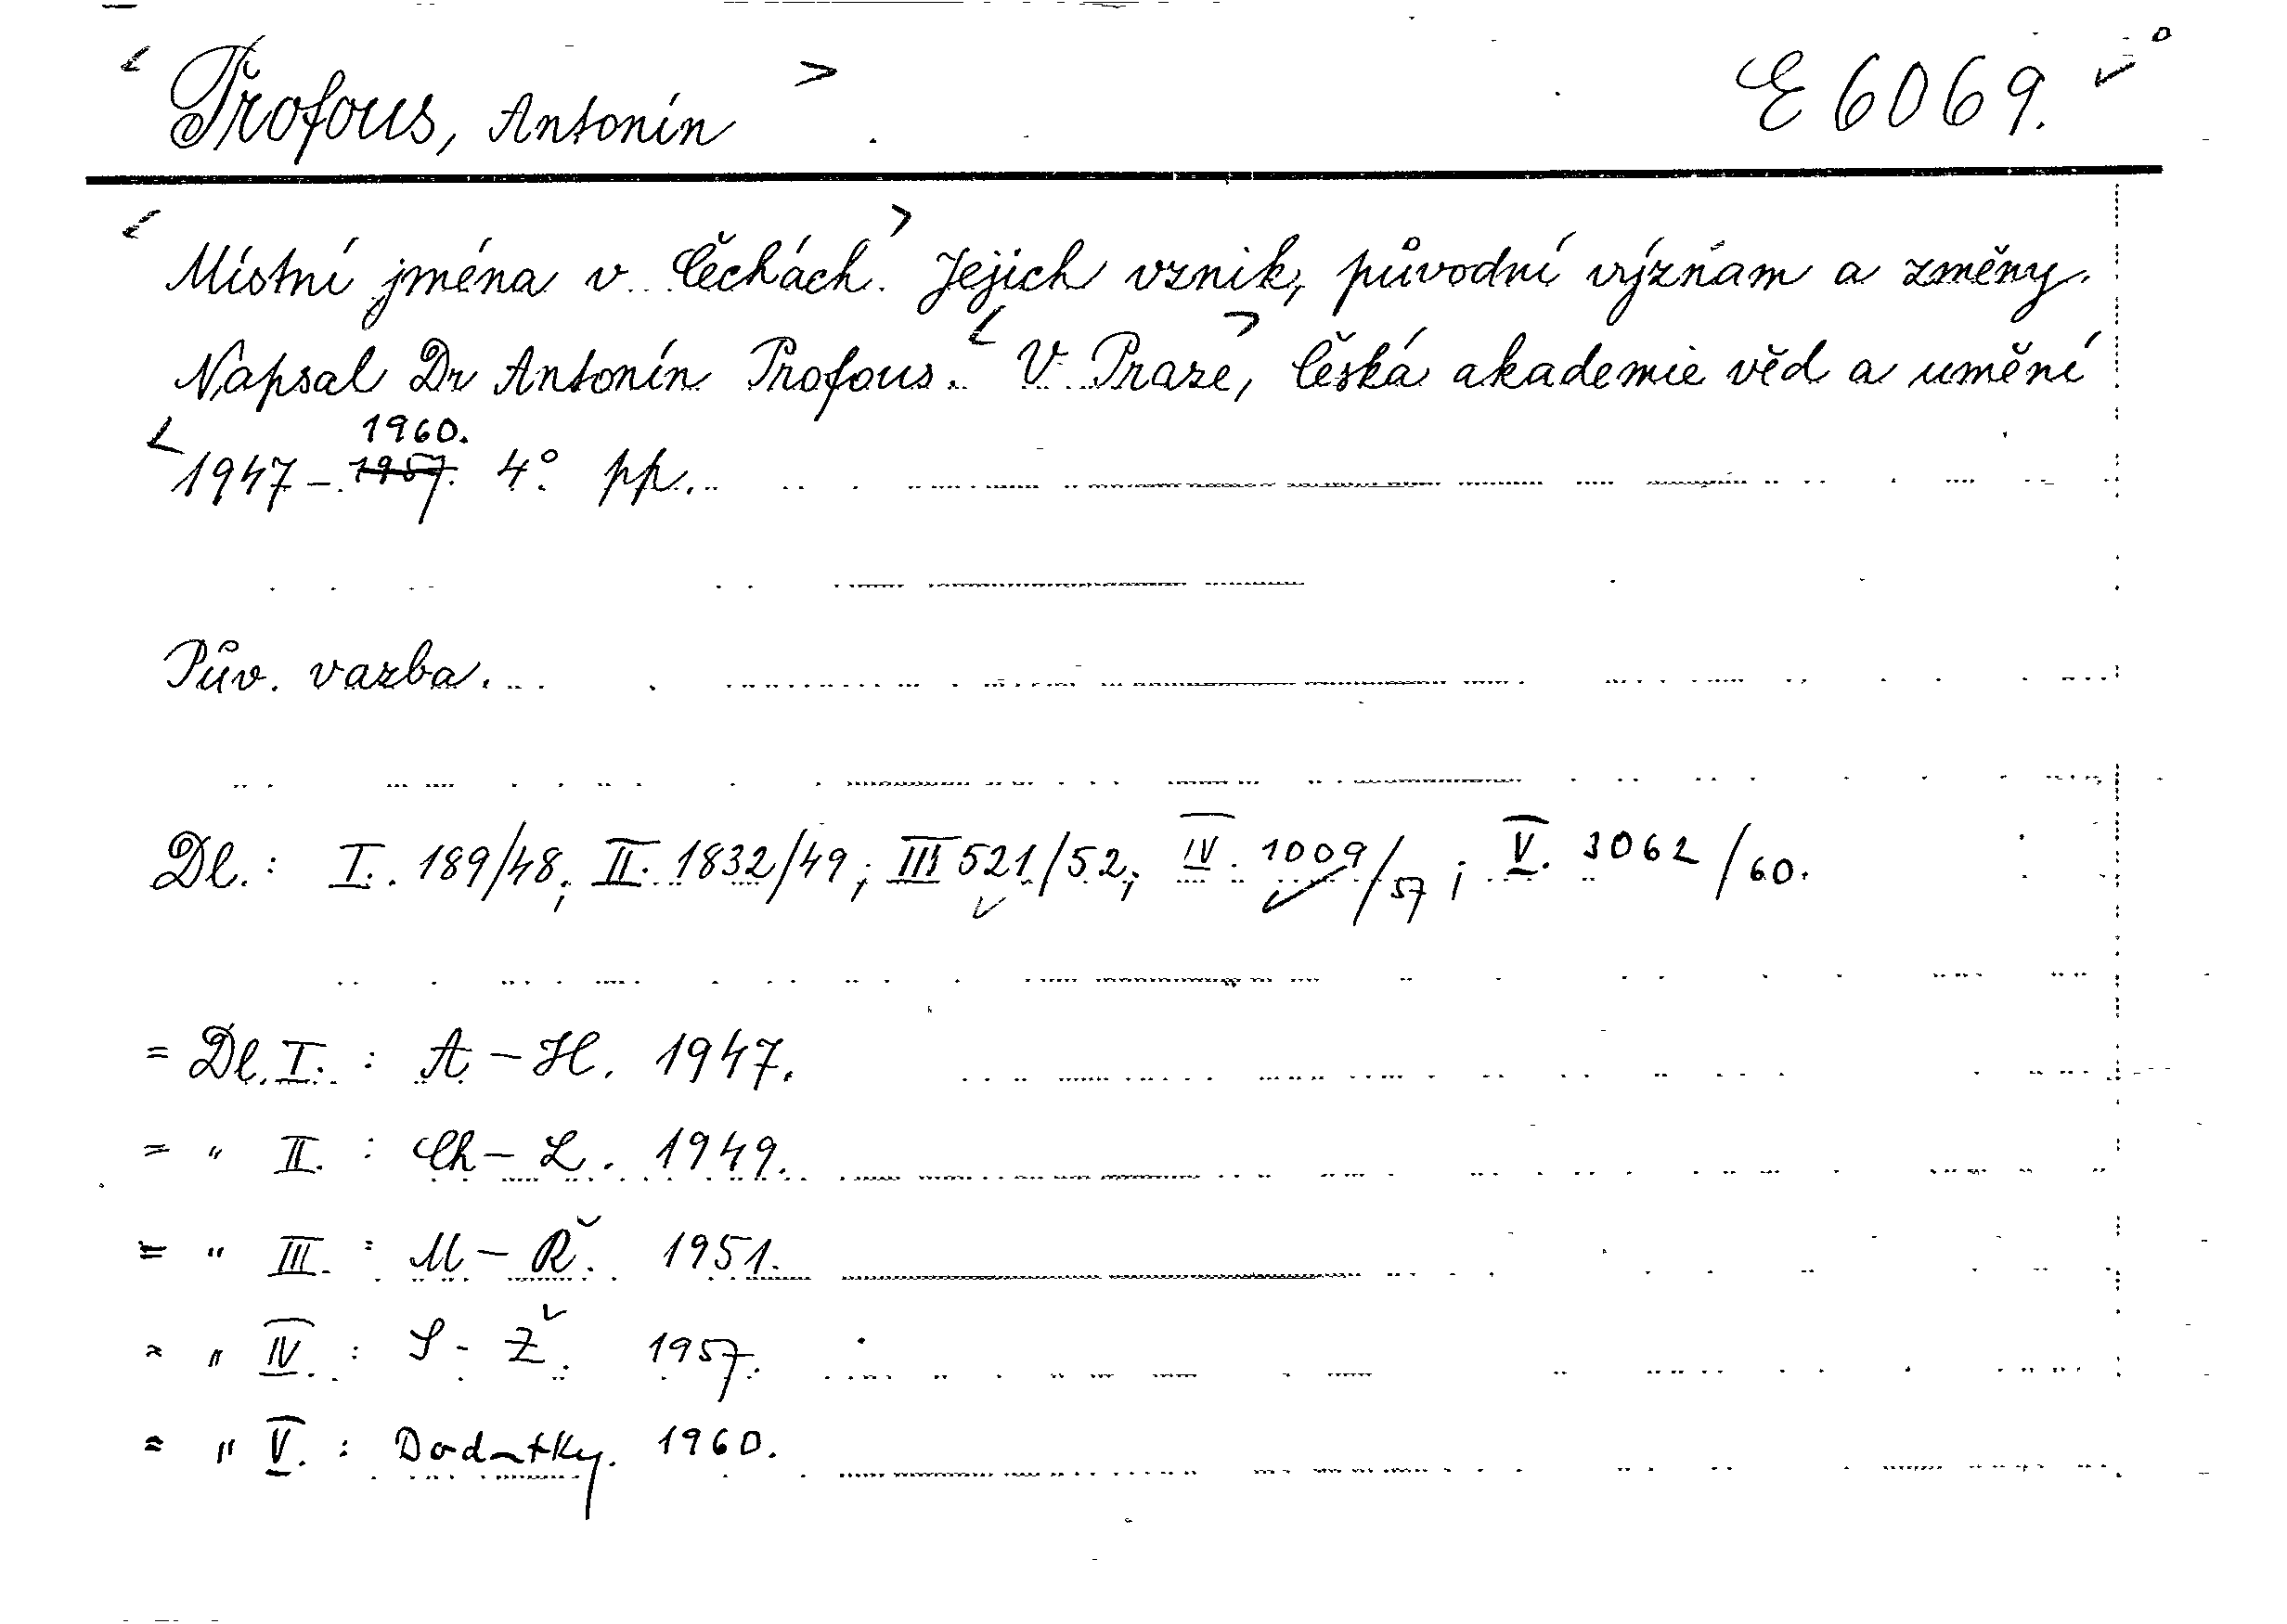 Profous, Antonín E 6069.
Místní jména v Čechách. Jejich vznik, původní význam a změny.
Napsal Dr Antonín Profous. V Praze, Česká akademie věd a umění
1960.
1947 - 1957. 4° pp.
Pův. vazba.
Dl.: I. 189/48, II. 1832/49; III 521/52; IV. 1009/57; V. 3062/60.
= Dl. I. : A - H. 1947.
= " II. : Ch - L. 1949.
= " III. : M - Ř. 1951.
= " IV. : S - Ž. 1957.
= " V. : Dodatky. 1960.